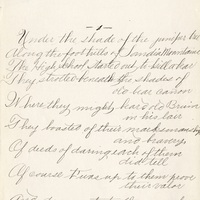 - 1 -
Under the shade of the juniper tree
Along the foot hills of Sandia Mountains
The High school started out to kill a bear
They strolled beneath the shades of
old bear canon
Where they might beard old Bruin
in his lair
They boasted of their marksmanship
and bravery
Of deeds of daring each of them
did tell
Of course t'was up to them prove
their valor